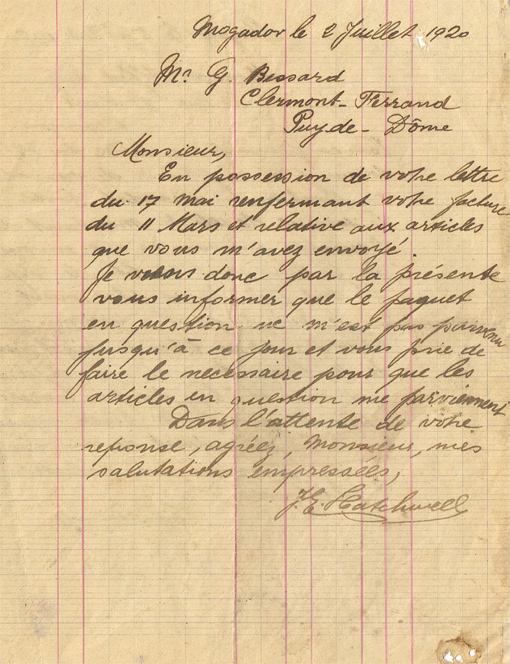 Mogador le 2 Juillet 1920
Mr. G. Bessard
Clermont-Ferrand
Puy de-Dôme
Monsieur,
En possession de votre lettre
du 17 mai renfermant votre facture
du 11 Mars et relative aux articles
que vous m'avez envoyé.
Je viens donc par la présente
vous informer que le paquet
en question ne m'est pas parvenu
jusqu'à ce jour et vous prie de
faire le necessaire pour que les
articles en question me parviennent
Dans l'attente de votre
reponse, agréez, Monsieur, mes
salutations empressées,
J. E. Hatchwell